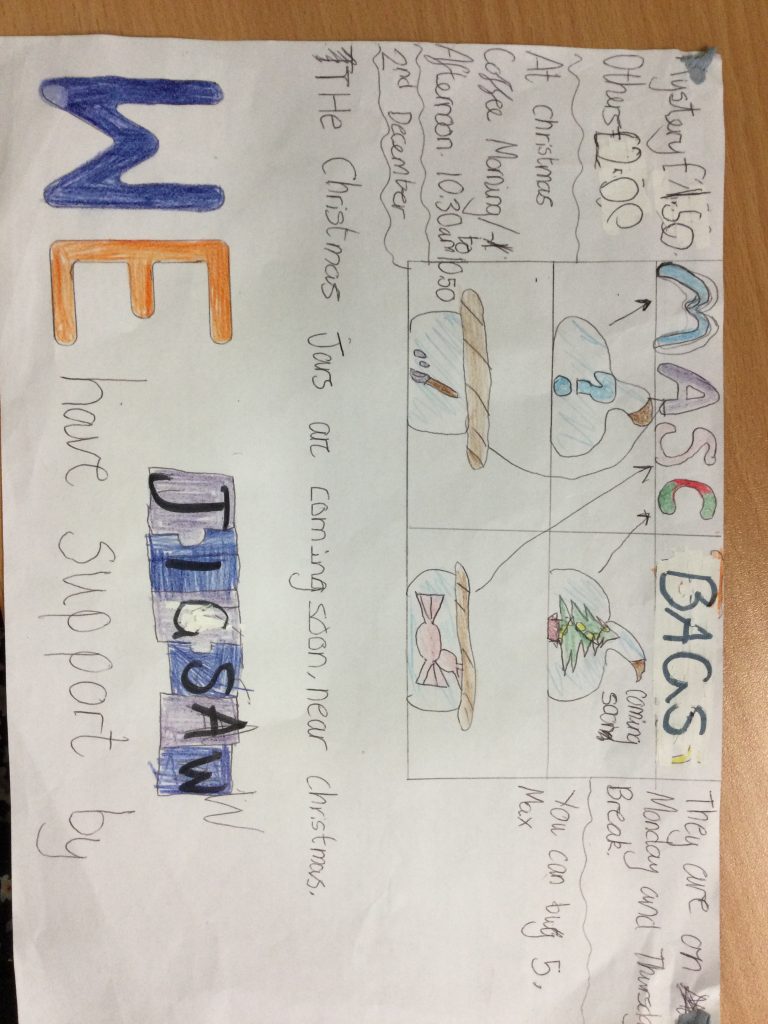 MASC BAGS
Mystery £1.50.
Others £2.00
At christmas
Coffee Morning/
Afternoon. 10:30am to 10:50
2nd December
?
coming
soon
They are on
Monday and
Break.
You can buy 5,
Max
THe Christmas Jars are coming soon, near christmas.
JIGSAW
W
WE have support by